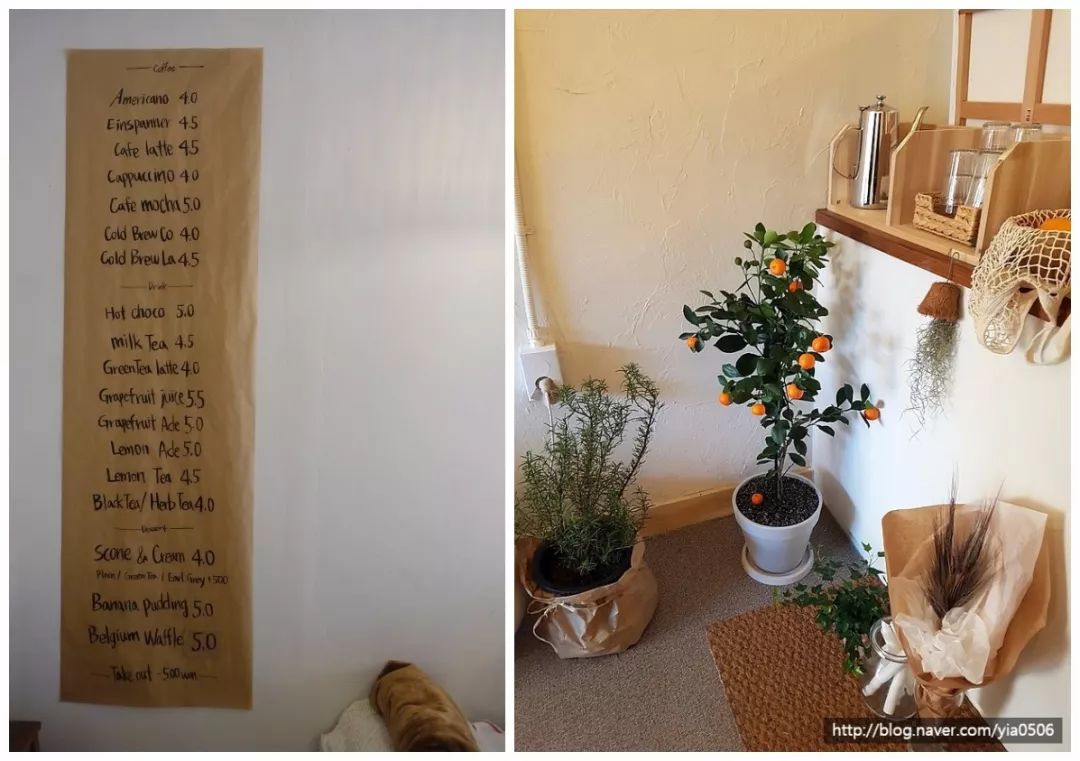 Coffee
Americano 4.0
Einspanner 4.5
Cafe latte 4.5
Cappuccino 4.0
Cafe mocha 5.0
Cold Brew Co 4.0
Cold Brew La 4.5
Drink
Hot choco 5.0
milk Tea 4.5
Green Tea latte 4.0
Grapefruit juice 5.5
Grapefruit Ade 5.0
Lemon Ade 5.0
Lemon Tea 4.5
Black Tea / Herb Tea 4.0
Dessert
Scone & Cream 4.0
Plain / Green Tea / Earl Grey +500
Banana pudding 5.0
Belgium Waffle 5.0
Take out -500won
http://blog.naver.com/yia0506